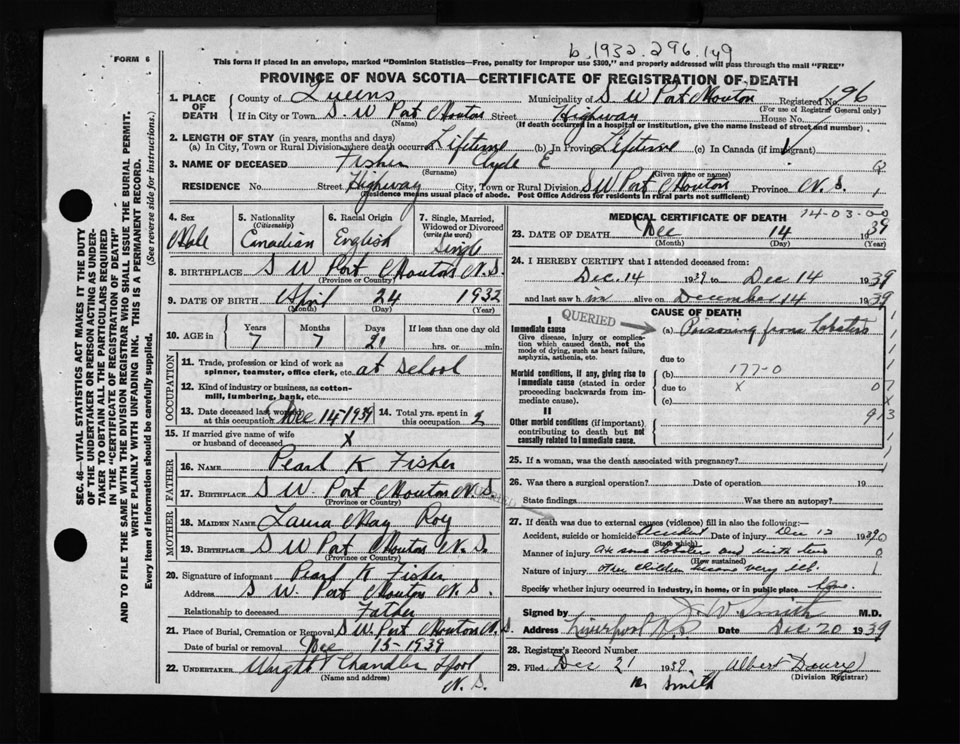 b. 1932. 296. 149
FORM 6
This form if placed in an envelope, marked "Dominion Statistics—Free, penalty for improper use $300," and properly addressed will pass through the mail "FREE"
PROVINCE OF NOVA SCOTIA—CERTIFICATE OF REGISTRATION OF DEATH
SEC. 46—VITAL STATISTICS ACT MAKES IT THE DUTY
OF THE UNDERTAKER OR PERSON ACTING AS UNDER-
TAKER TO OBTAIN ALL THE PARTICULARS REQUIRED
IN THE "CERTIFICATE OF REGISTRATION OF DEATH"
AND TO FILE THE SAME WITH THE DIVISION REGISTRAR WHO SHALL ISSUE THE BURIAL PERMIT.
WRITE PLAINLY WITH UNFADING INK. THIS IS A PERMANENT RECORD.
Every item of information should be carefully supplied. (See reverse side for instructions.)
1. PLACE OF DEATH
County of Queens Municipality of S. W Port Mouton Registered No. 196
(For use of Registrar General only)
If in City or Town S. W Port Mouton Street Highway House No.
(Name) (If death occurred in a hospital or institution, give the name instead of street and number)
2. LENGTH OF STAY (in years, months and days)
(a) In City, Town or Rural Division where death occurred Lifetime (b) In Province Lifetime (c) In Canada (if immigrant)
3. NAME OF DECEASED Fisher Clyde E
(Surname) (Given name or names)
RESIDENCE No. Street Highway City, Town or Rural Division S W Port Mouton Province N. S.
(Residence means usual place of abode. Post Office Address for residents in rural parts not sufficient)
4. Sex Male
5. Nationality (Citizenship) Canadian
6. Racial Origin English
7. Single, Married, Widowed or Divorced (write the word) Single
8. BIRTHPLACE S W Port Mouton N. S.
(Province or Country)
9. DATE OF BIRTH April 24 1932
(Month) (Day) (Year)
10. AGE in Years 7 Months 7 Days 21 If less than one day old hrs. or min.
OCCUPATION
11. Trade, profession or kind of work as spinner, teamster, office clerk, etc. at School
12. Kind of industry or business, as cotton-mill, lumbering, bank, etc.
13. Date deceased last worked at this occupation Dec 14-1939
14. Total yrs. spent in this occupation 2
15. If married give name of wife or husband of deceased X
FATHER
16. NAME Pearl K Fisher
17. BIRTHPLACE S W. Port Mouton N. S
(Province or Country)
MOTHER
18. MAIDEN NAME Laura May Roy
19. BIRTHPLACE S W Port Mouton N. S.
(Province or Country)
20. Signature of informant Pearl K Fisher
Address S W. Port Mouton N. S
Relationship to deceased Father
21. Place of Burial, Cremation or Removal S W. Port Mouton N. S.
Date of burial or removal Dec 15-1939
22. UNDERTAKER Wright Chandler Lpool
(Name and address) N. S.
MEDICAL CERTIFICATE OF DEATH
14-03-0-0
23. DATE OF DEATH Dec 14 1939
(Month) (Day) (Year)
24. I HEREBY CERTIFY that I attended deceased from:
Dec. 14 1939 to Dec 14 1939
and last saw him alive on December 14 1939
CAUSE OF DEATH
QUERIED
I
Immediate cause
Give disease, injury or complication which caused death, not the mode of dying, such as heart failure, asphyxia, asthenia, etc.
(a) Poisoning from Lobsters
due to
Morbid conditions, if any, giving rise to immediate cause (stated in order proceeding backwards from immediate cause).
(b) 177-0
due to X
(c)
II
Other morbid conditions (if important) contributing to death but not causally related to immediate cause.
25. If a woman, was the death associated with pregnancy?
26. Was there a surgical operation? Date of operation 19
State findings Was there an autopsy?
QUERIED
27. If death was due to external causes (violence) fill in also the following:—
Accident, suicide or homicide Accident Date of injury Dec 13 1939
(State which)
Manner of injury Ate some lobsters and
(How sustained)
Nature of injury Other children became very ill.
Specify whether injury occurred in industry, in home, or in public place
Signed by J. W. Smith M.D.
Address Liverpool N.S. Date Dec 20 1939
28. Registrar's Record Number
29. Filed Dec 21 1939
(Division Registrar)
Smith